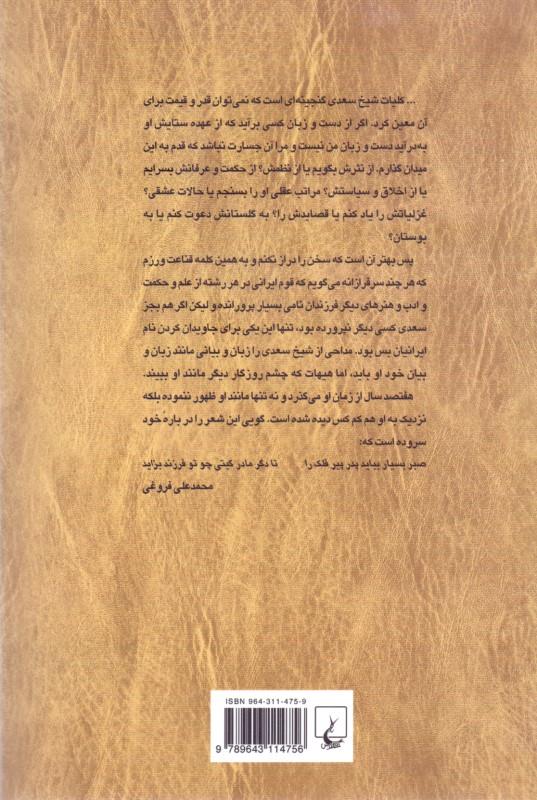 ... کلیات شیخ سعدی گنجینه‌ای است که نمی‌توان قدر و قیمت برای
آن معین کرد. اگر از دست و زبان کسی برآید که از عهده ستایش او
به‌درآید دست و زبان من نیست و مرا آن جسارت نباشد که قدم به این
میدان گذارم. از نثرش بگویم یا از نظمش؟ از حکمت و عرفانش بسرایم
یا از اخلاق و سیاستش؟ مراتب عقلی او را بسنجم یا حالات عشقی؟
غزلیاتش را یاد کنم یا قصایدش را؟ به گلستانش دعوت کنم یا به
بوستان؟
پس بهتر آن است که سخن را دراز نکنم و به همین کلمه قناعت ورزم
که هر چند سرفرازانه می‌گویم که قوم ایرانی در هر رشته از علم و حکمت
و ادب و هنرهای دیگر فرزندان نامی بسیار پرورانده ولیکن اگر هم بجز
سعدی کسی دیگر نپرورده بود، تنها این یکی برای جاویدان کردن نام
ایرانیان بس بود. مداحی از شیخ سعدی را زبان و بیانی مانند زبان و
بیان خود او باید، اما هیهات که چشم روزگار دیگر مانند او ببیند.
هفتصد سال از زمان او می‌گذرد و نه تنها مانند او ظهور ننموده بلکه
نزدیک به او هم کم کس دیده شده است. گویی این شعر را در باره خود
سروده است که:
صبر بسیار بباید پدر پیر فلک را تا دگر مادر گیتی چو تو فرزند بزاید
محمدعلی فروغی
ISBN 964-311-475-9
9 789643 114756
ققنوس